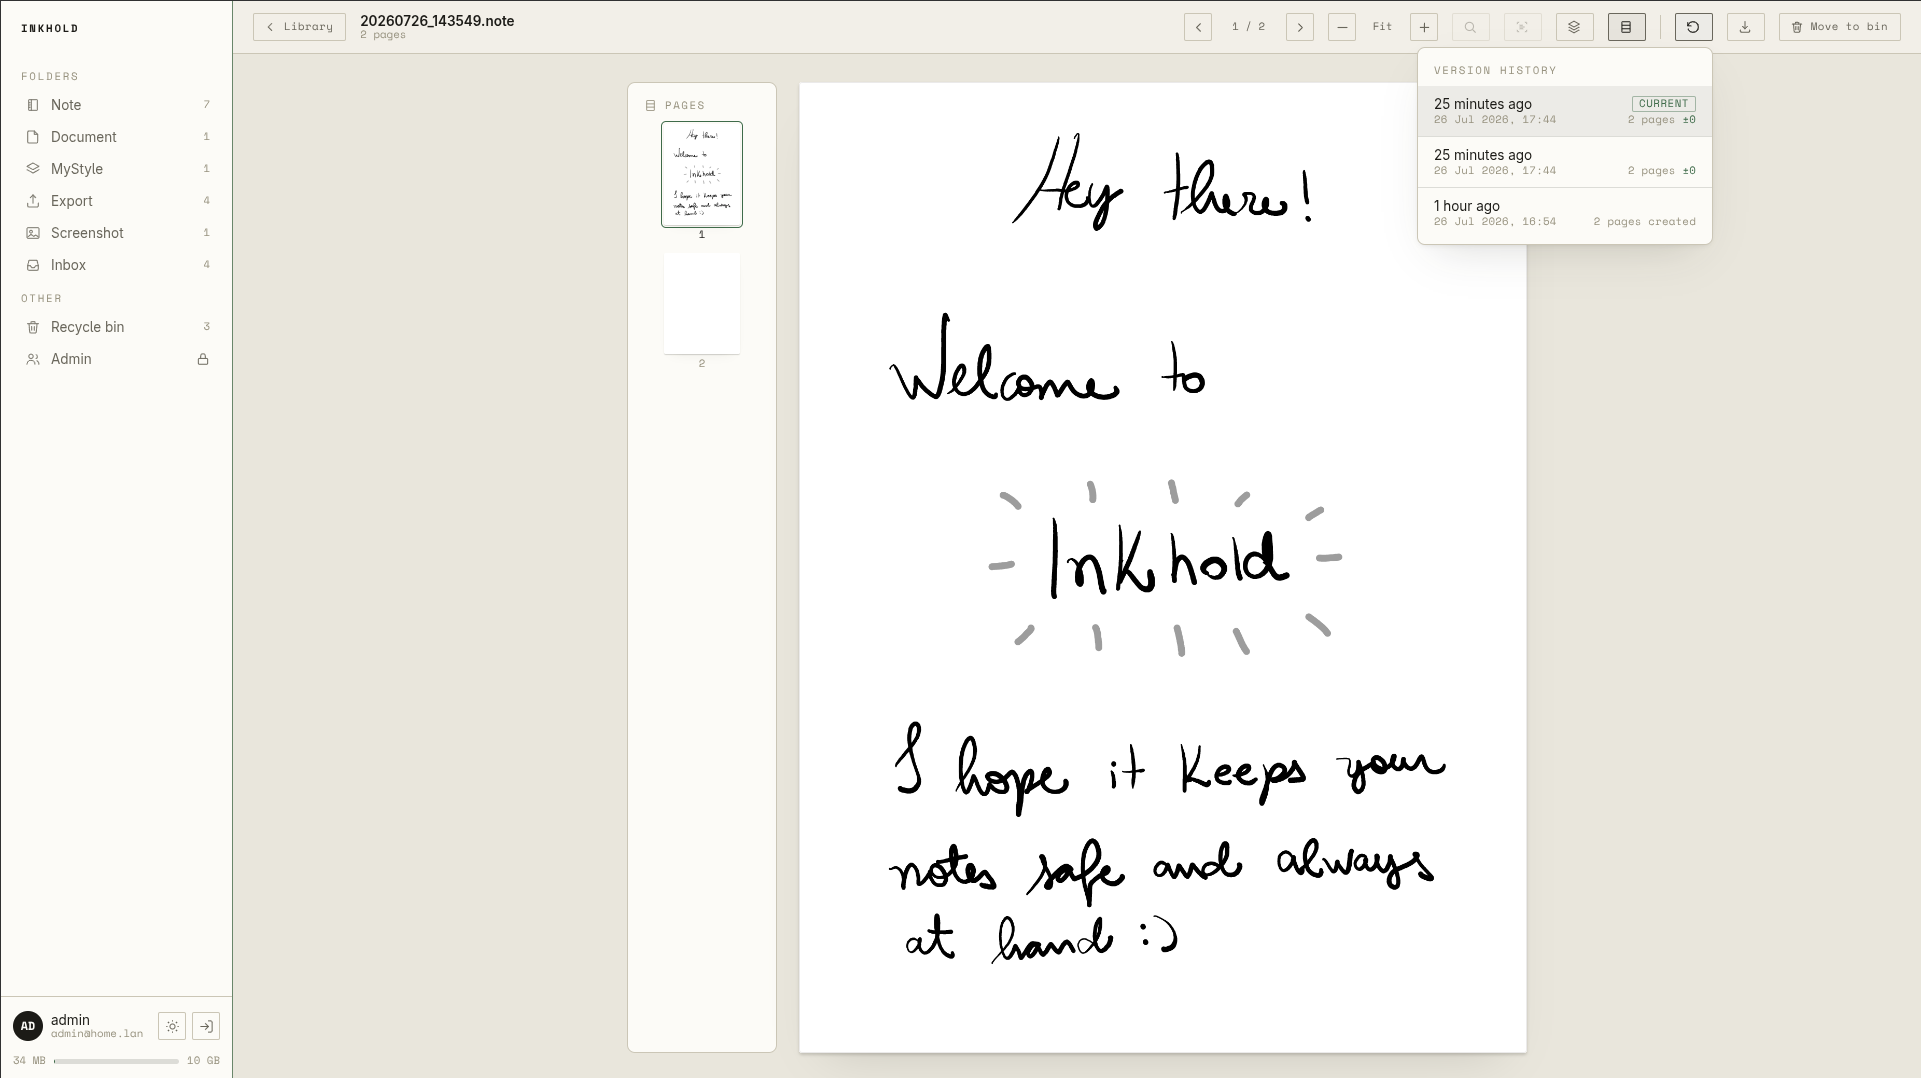 INKHOLD
FOLDERS
Note 7
Document 1
MyStyle 1
Export 4
Screenshot 1
Inbox 4
OTHER
Recycle bin 3
Admin
AD
admin
admin@home.lan
34 MB 10 GB
Library
20260726_143549.note
2 pages
1 / 2
Fit
Move to bin
VERSION HISTORY
25 minutes ago CURRENT
26 Jul 2026, 17:44 2 pages ±0
25 minutes ago
26 Jul 2026, 17:44 2 pages ±0
1 hour ago
26 Jul 2026, 16:54 2 pages created
PAGES
Hey there!
Welcome to
Inkhold
I hope it keeps your
notes safe and always
at hand :)
1
2
Hey there!
Welcome to
Inkhold
I hope it keeps your
notes safe and always
at hand :)